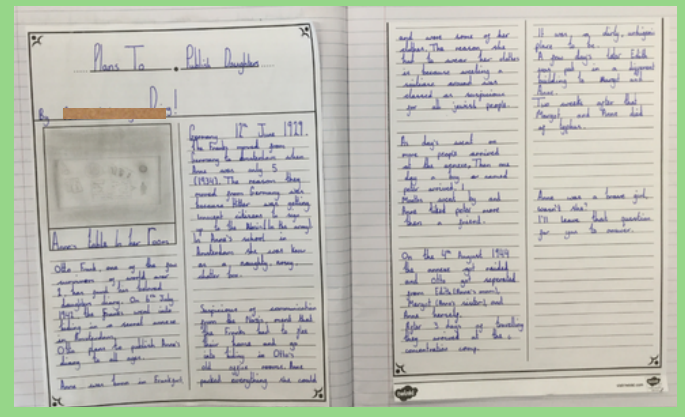 Plans To Publish Daughters
Diary!
By
Anne's table in her room
Otto Frank, one of the few
survivors of world war
2 has found his beloved
daughters diary. On 6th July
1942 the Franks went into
hiding in a secret annexe
in Amsterdam.
Otto plans to publish Anne's
diary to all ages.
Anne was born in Frankfurt
Germany 12th June 1929.
The Franks moved from
Germany to Amsterdam when
Anne was only 5
(1934). The reason they
moved from Germany was
because Hitler was getting
innocent
to the
In Anne's school in
Amsterdam she was known
as a naughty, noisy,
chatter box.
Suspicious of communication
from the Nazis meant that
the Franks had to flee
their home and go
into hiding in Otto's
old office rooms. Anne
packed everything she could
and wore some of her
clothes. The reason she
had to wear her clothes
is because wearing a
suitcase around was
classed as suspicious
for all jewish people.
As day's went on
more people arrived
at the annexe. Then one
day a boy named
peter arrived.
Months went by and
Anne liked peter more
than a friend.
On the 4th August 1944
the annexe got raided
and Otto got seperated
from Edith (Anne's mum),
Margot (Anne's sister) and
Anne herself.
After 3 days of travelling
they arrived at the
concentration camp.
It was a dirty,
place to be.
A few day's later Edith
got put in a different
building to Margot and
Anne.
Two weeks after that
Margot and Anne died
of typhus.
Anne was a brave girl
wasn't she?
I'll leave that question
for you to answer.
twinkl